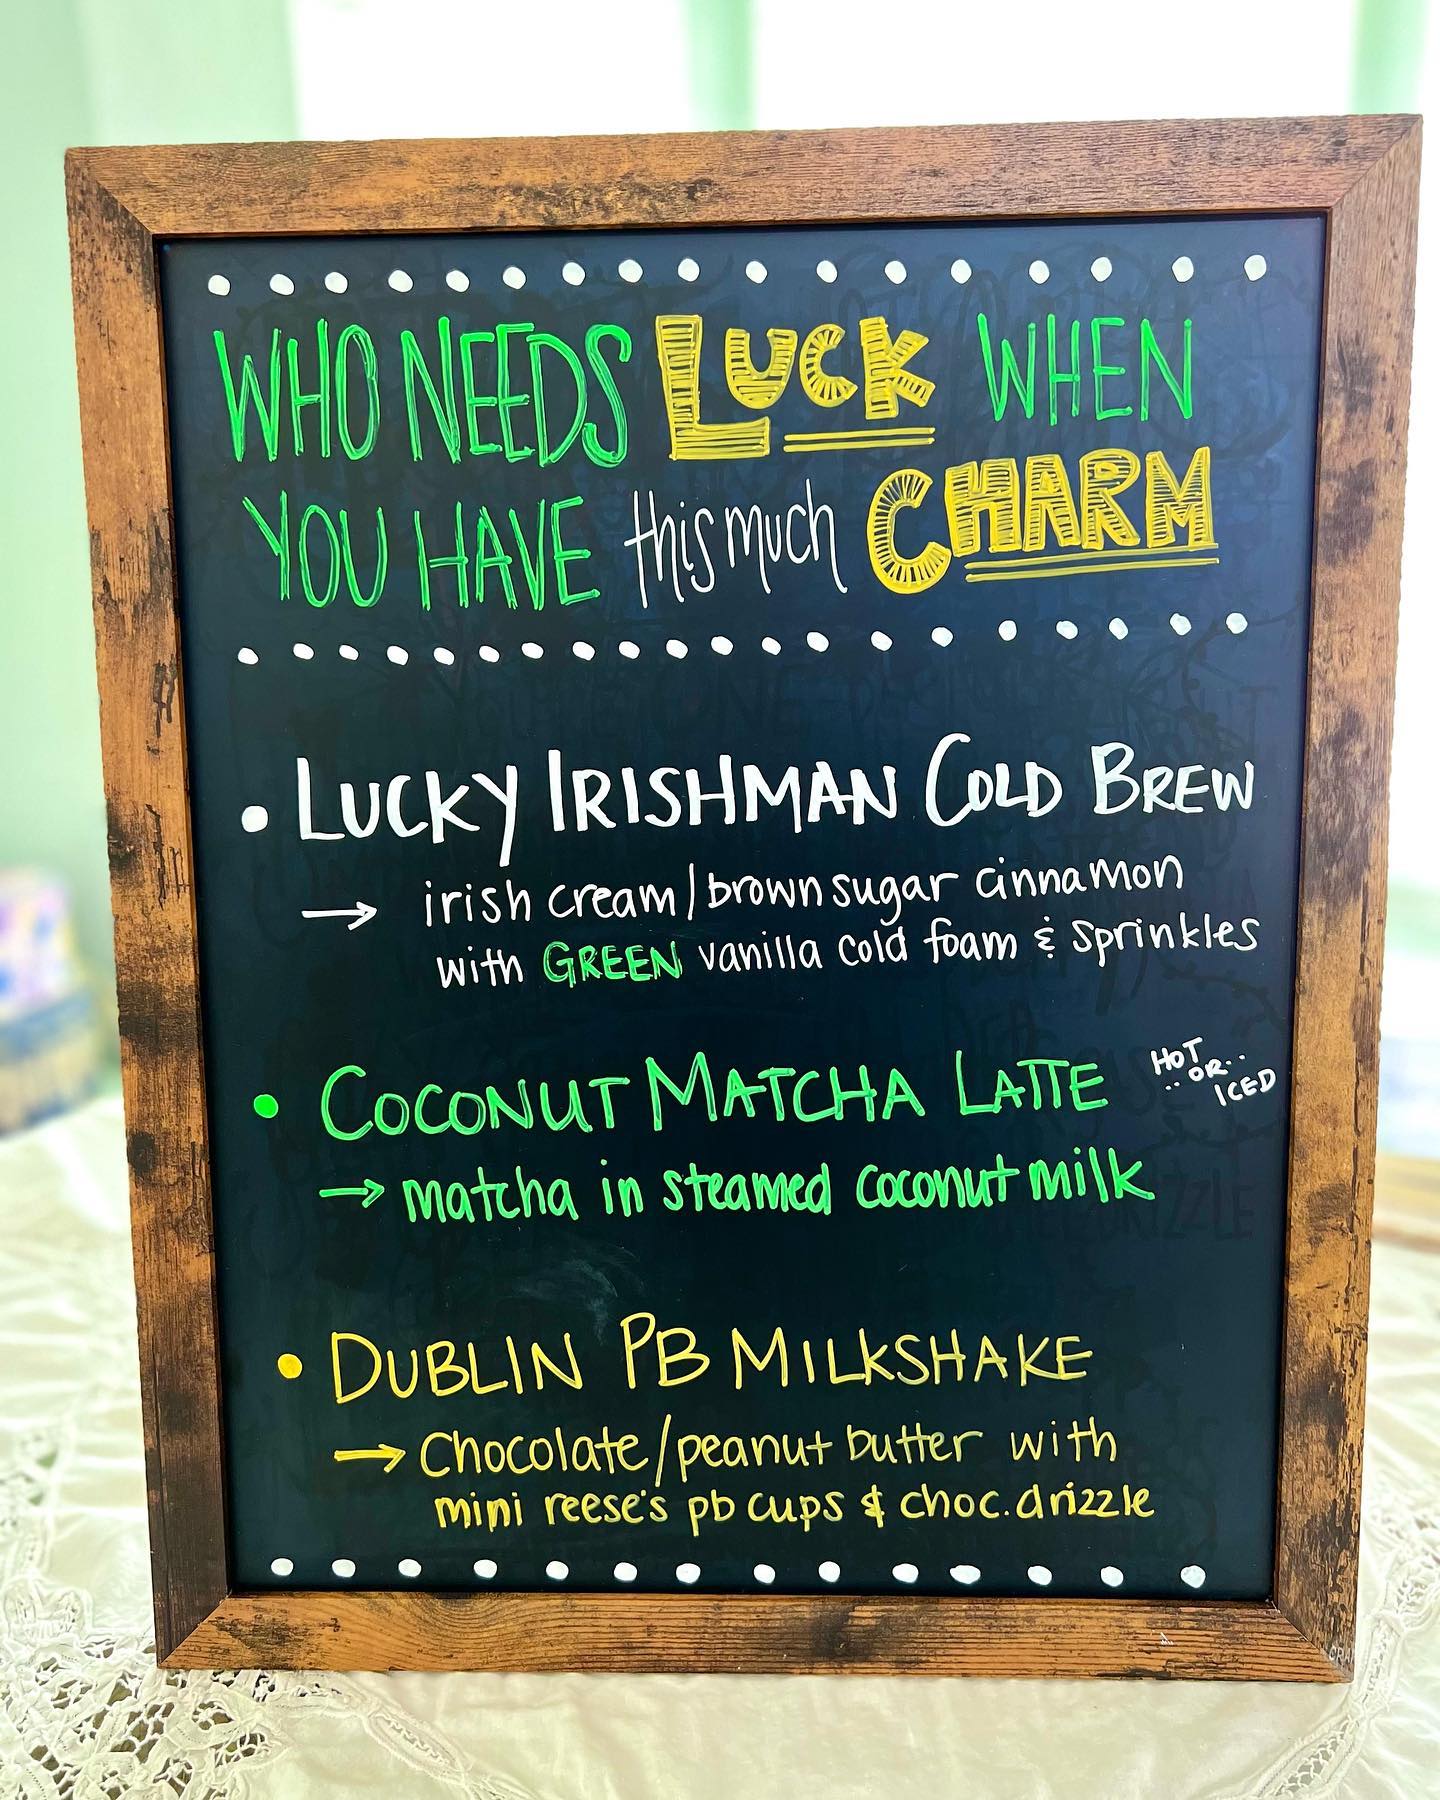 WHO NEEDS LUCK WHEN
YOU HAVE this much CHARM
• LUCKY IRISHMAN COLD BREW
→ irish cream/brown sugar cinnamon
with GREEN vanilla cold foam & sprinkles
• COCONUT MATCHA LATTE HOT
.. OR..
ICED
→ matcha in steamed coconut milk
• DUBLIN PB MILKSHAKE
→ Chocolate/peanut butter with
mini reese's pb cups & choc. drizzle